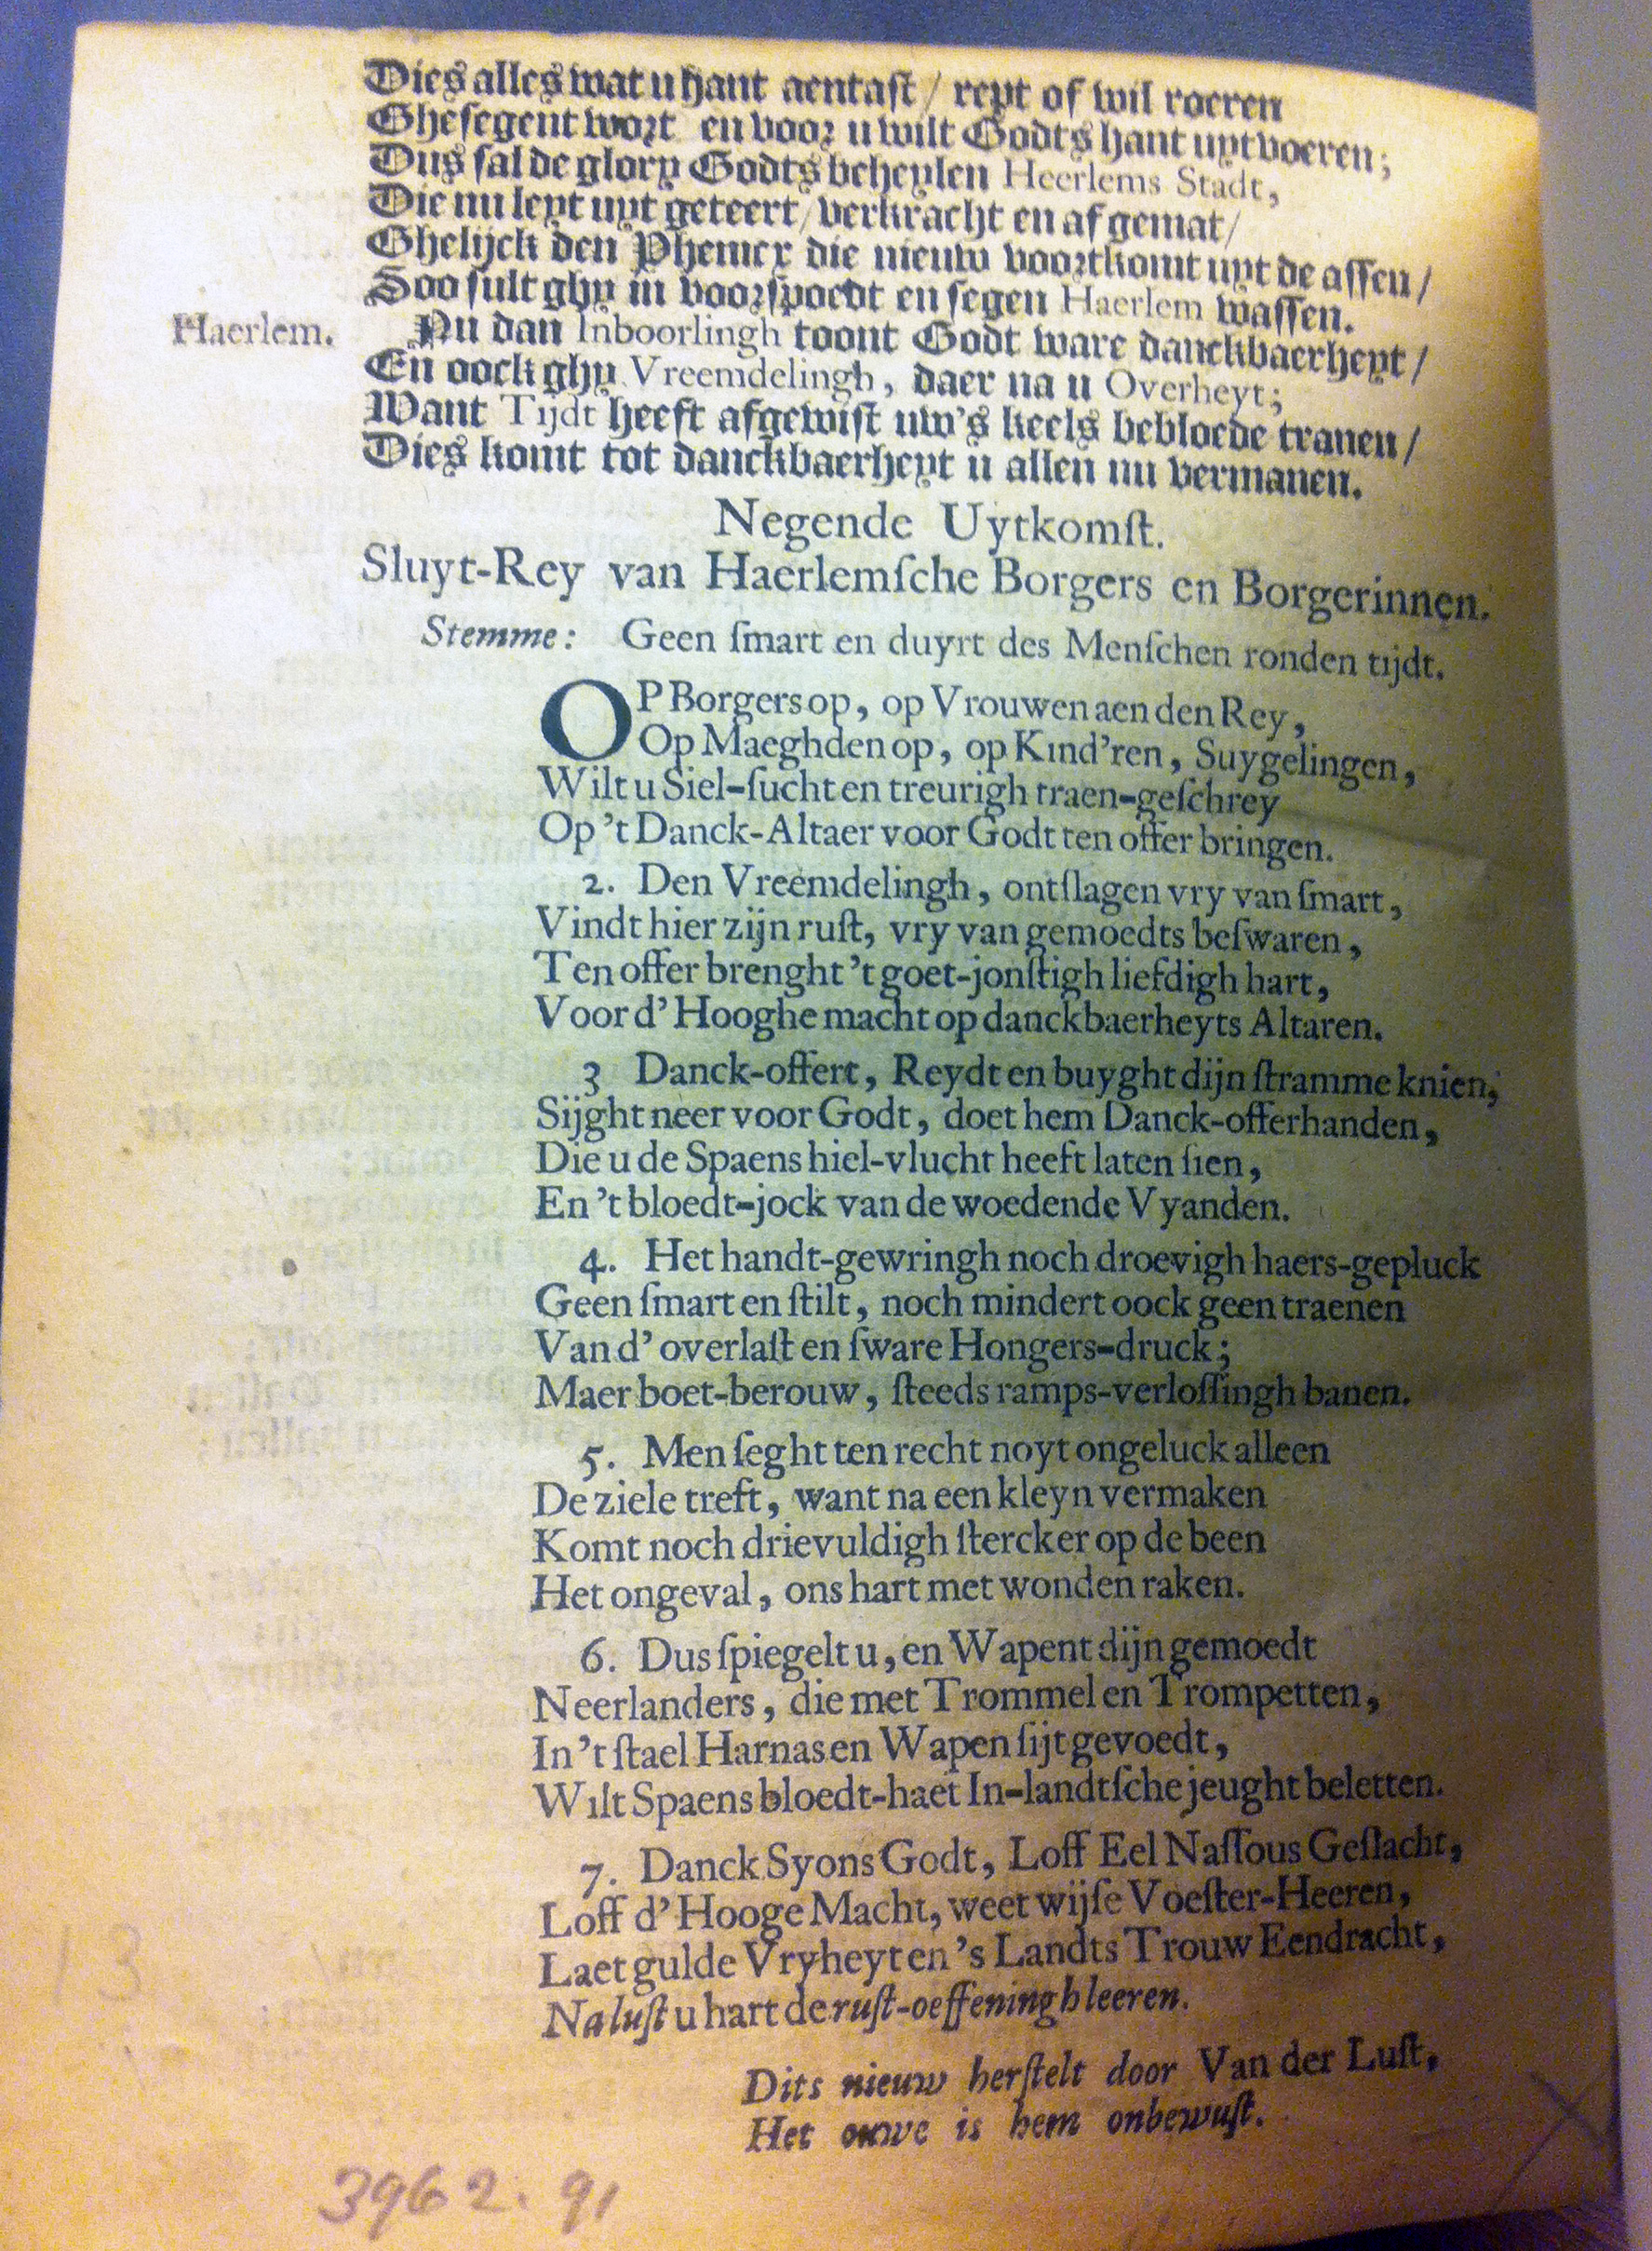 Dies alles wat u hant aentast / rept of wil roeren
Ghesegent wort en voor u wilt Godts hant uytvoeren;
Dus sal de glory Godts beheylen Heerlems Stadt,
Die nu leyt uyt geteert / verkracht en af gemat /
Ghelijck den Phenicx die nieuw voortkomt uyt de assen /
Soo sult ghy in voorspoedt en segen Haerlem wassen.
Haerlem. Nu dan Inboorlingh toont Godt ware danckbaerheyt /
En oock ghy Vreemdelingh, daer na u Overheyt;
Want Tijdt heeft afgewist uw's keels bebloede tranen /
Dies komt tot danckbaerheyt u allen nu vermanen.
Negende Uytkomſt.
Sluyt-Rey van Haerlemſche Borgers en Borgerinnen.
Stemme: Geen ſmart en duyrt des Menſchen ronden tijdt.
OP Borgers op, op Vrouwen aen den Rey,
Op Maeghden op, op Kind'ren, Suygelingen,
Wilt u Siel-ſucht en treurigh traen-geſchrey
Op 't Danck-Altaer voor Godt ten offer bringen.
2. Den Vreemdelingh, ontſlagen vry van ſmart,
Vindt hier zijn ruſt, vry van gemoedts beſwaren,
Ten offer brenght 't goet-jonſtigh liefdigh hart,
Voor d' Hooghe macht op danckbaerheyts Altaren.
3 Danck-offert, Reydt en buyght dijn ſtramme knien,
Sijght neer voor Godt, doet hem Danck-offerhanden,
Die u de Spaens hiel-vlucht heeft laten ſien,
En 't bloedt-jock van de woedende Vyanden.
4. Het handt-gewringh noch droevigh haers-gepluck
Geen ſmart en ſtilt, noch mindert oock geen traenen
Van d' overlaſt en ſware Hongers-druck;
Maer boet-berouw, ſteeds ramps-verloſſingh banen.
5. Men ſeght ten recht noyt ongeluck alleen
De ziele treft, want na een kleyn vermaken
Komt noch drievuldigh ſtercker op de been
Het ongeval, ons hart met wonden raken.
6. Dus ſpiegelt u, en Wapent dijn gemoedt
Neerlanders, die met Trommel en Trompetten,
In 't ſtael Harnas en Wapen ſijt gevoedt,
Wilt Spaens bloedt-haet In-landtſche jeught beletten.
7. Danck Syons Godt, Loff Eel Naſſous Geſlacht,
Loff d' Hooge Macht, weet wijſe Voeſter-Heeren,
Laet gulde Vryheyt en 's Landts Trouw Eendracht,
Na luſt u hart de ruſt-oeffeningh leeren.
Dits nieuw herſtelt door Van der Luſt,
Het ouwe is hem onbewuſt.
13
3962.91